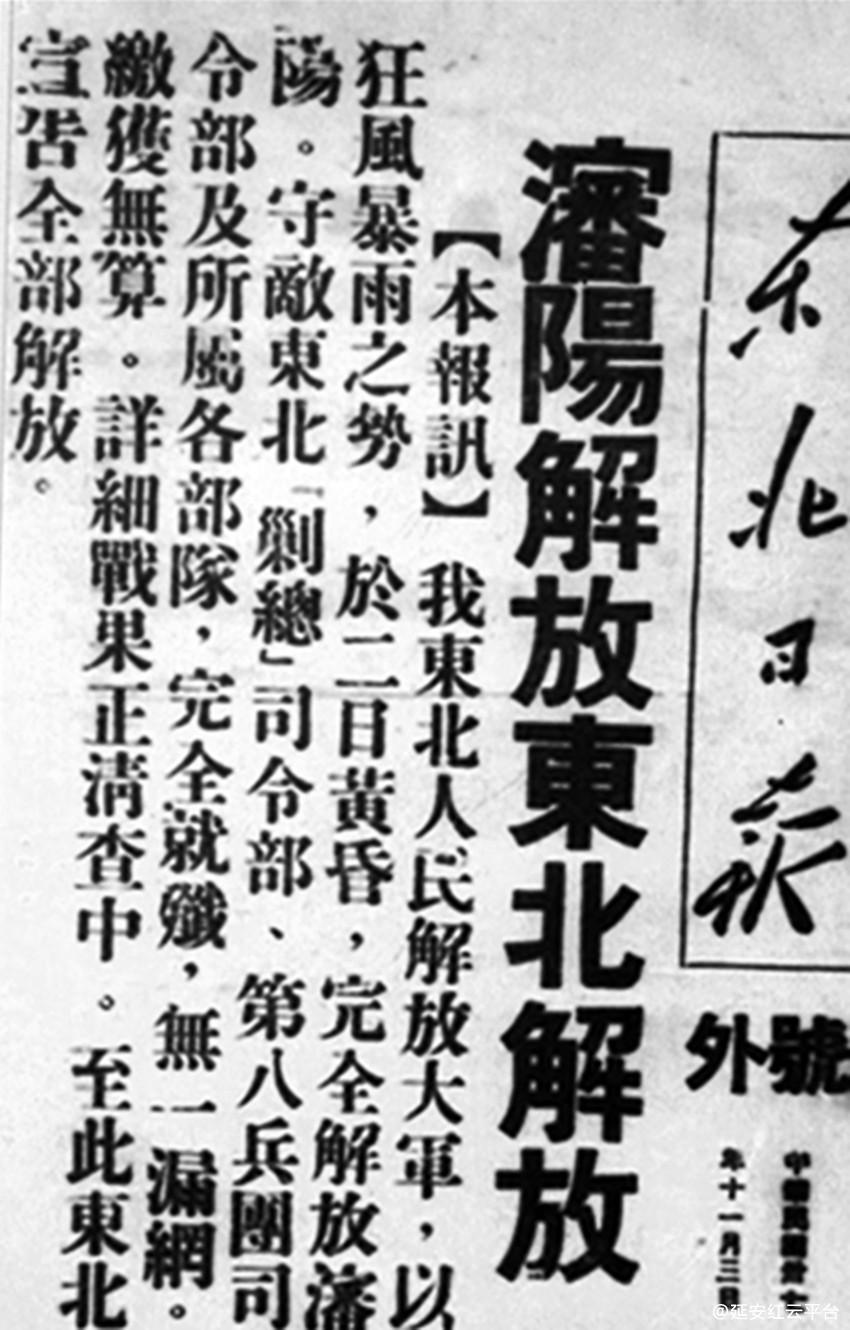 东北日报
號外
中華民國卅七
年十一月三日
瀋陽解放東北解放
【本報訊】我東北人民解放大軍，以
狂風暴雨之勢，於二日黃昏，完全解放瀋
陽。守敵東北「剿總」司令部、第八兵團司
令部及所屬各部隊，完全就殲，無一漏網。
繳獲無算。詳細戰果正清查中。至此東北
宣告全部解放。
@延安红云平台